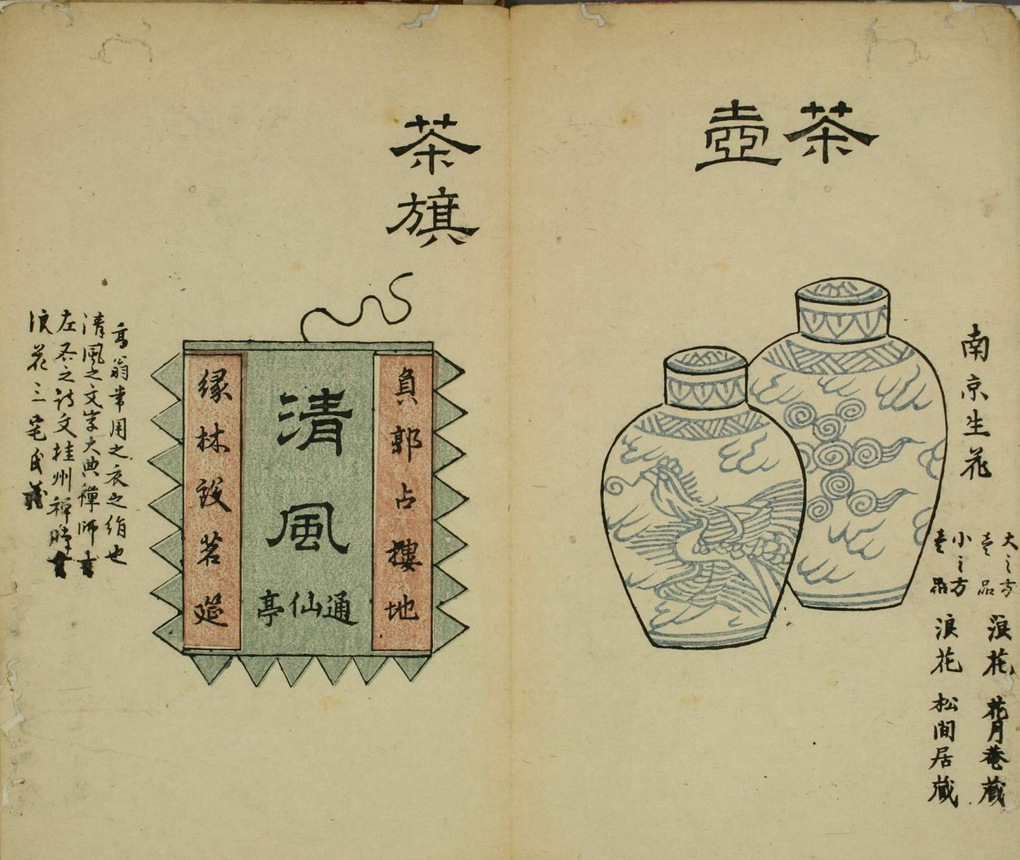 茶壺
南京生花
大之方
壱品
浪花 花月菴蔵
小之方
壱品
浪花 松間居蔵
茶旗
清風
通仙亭
負郭占樓地
縁林設茗莚
高翁常用之衣之絹也
清風之文字大典禅師書
左右之詩文桂州禅師書
浪花三宅氏蔵